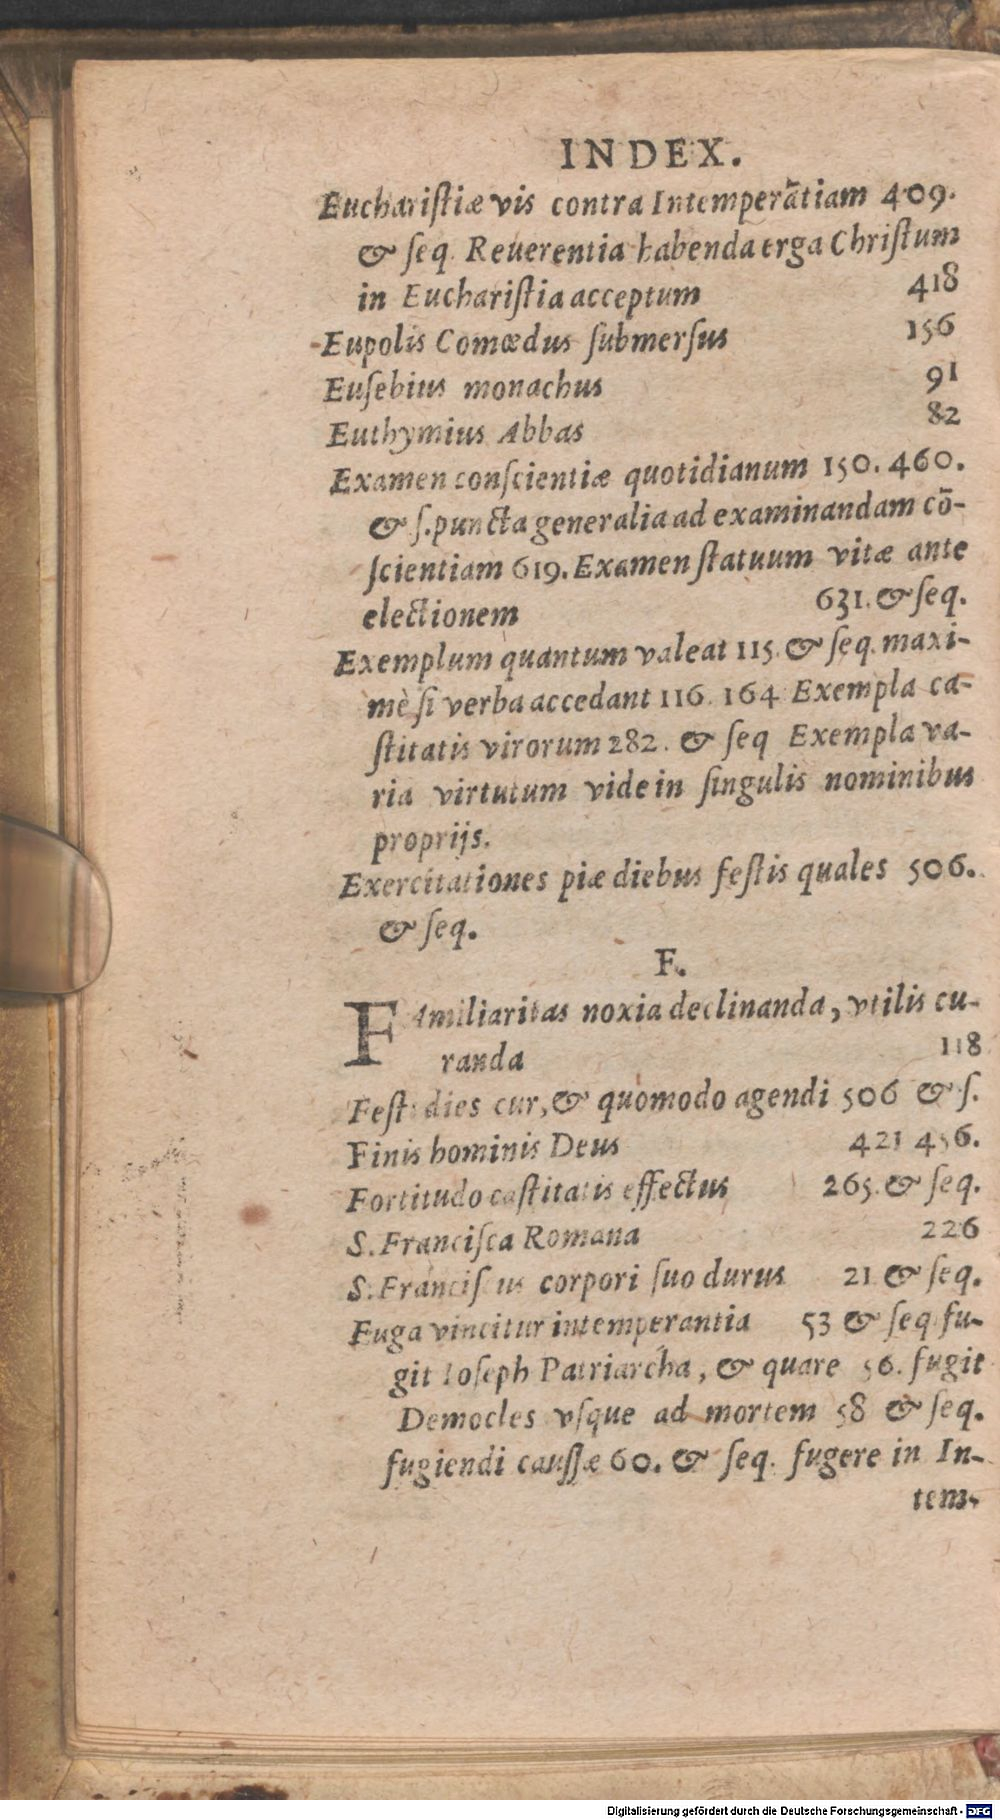 INDEX.
Euchariſtiæ vis contra Intemperãtiam 409.
& ſeq. Reuerentia habenda erga Chriſtum
in Euchariſtia acceptum 418
Eupolis Comœdus ſubmerſus 156
Euſebius monachus 91
Euthymius Abbas 82
Examen conſcientiæ quotidianum 150. 460.
& ſ. puncta generalia ad examinandam cõ-
ſcientiam 619. Examen ſtatuum vitæ ante
electionem 631. & ſeq.
Exemplum quantum valeat 115. & ſeq. maxi-
mè ſi verba accedant 116. 164 Exempla ca-
ſtitatis virorum 282. & ſeq Exempla va-
ria virtutum vide in ſingulis nominibus
proprijs.
Exercitationes piæ diebus feſtis quales 506.
& ſeq.
F.
FAmiliaritas noxia declinanda, vtilis cu-
randa 118
Feſti dies cur, & quomodo agendi 506 & ſ.
Finis hominis Deus 421 456.
Fortitudo caſtitatis effectus 265. & ſeq.
S. Franciſca Romana 226
S. Franciſcus corpori ſuo durus 21 & ſeq.
Fuga vincitur intemperantia 53 & ſeq fu-
git Ioſeph Patriarcha, & quare 56. fugit
Democles vſque ad mortem 58 & ſeq.
fugiendi cauſſæ 60. & ſeq. fugere in In-
tem-
Digitalisierung gefördert durch die Deutsche Forschungsgemeinschaft - DFG